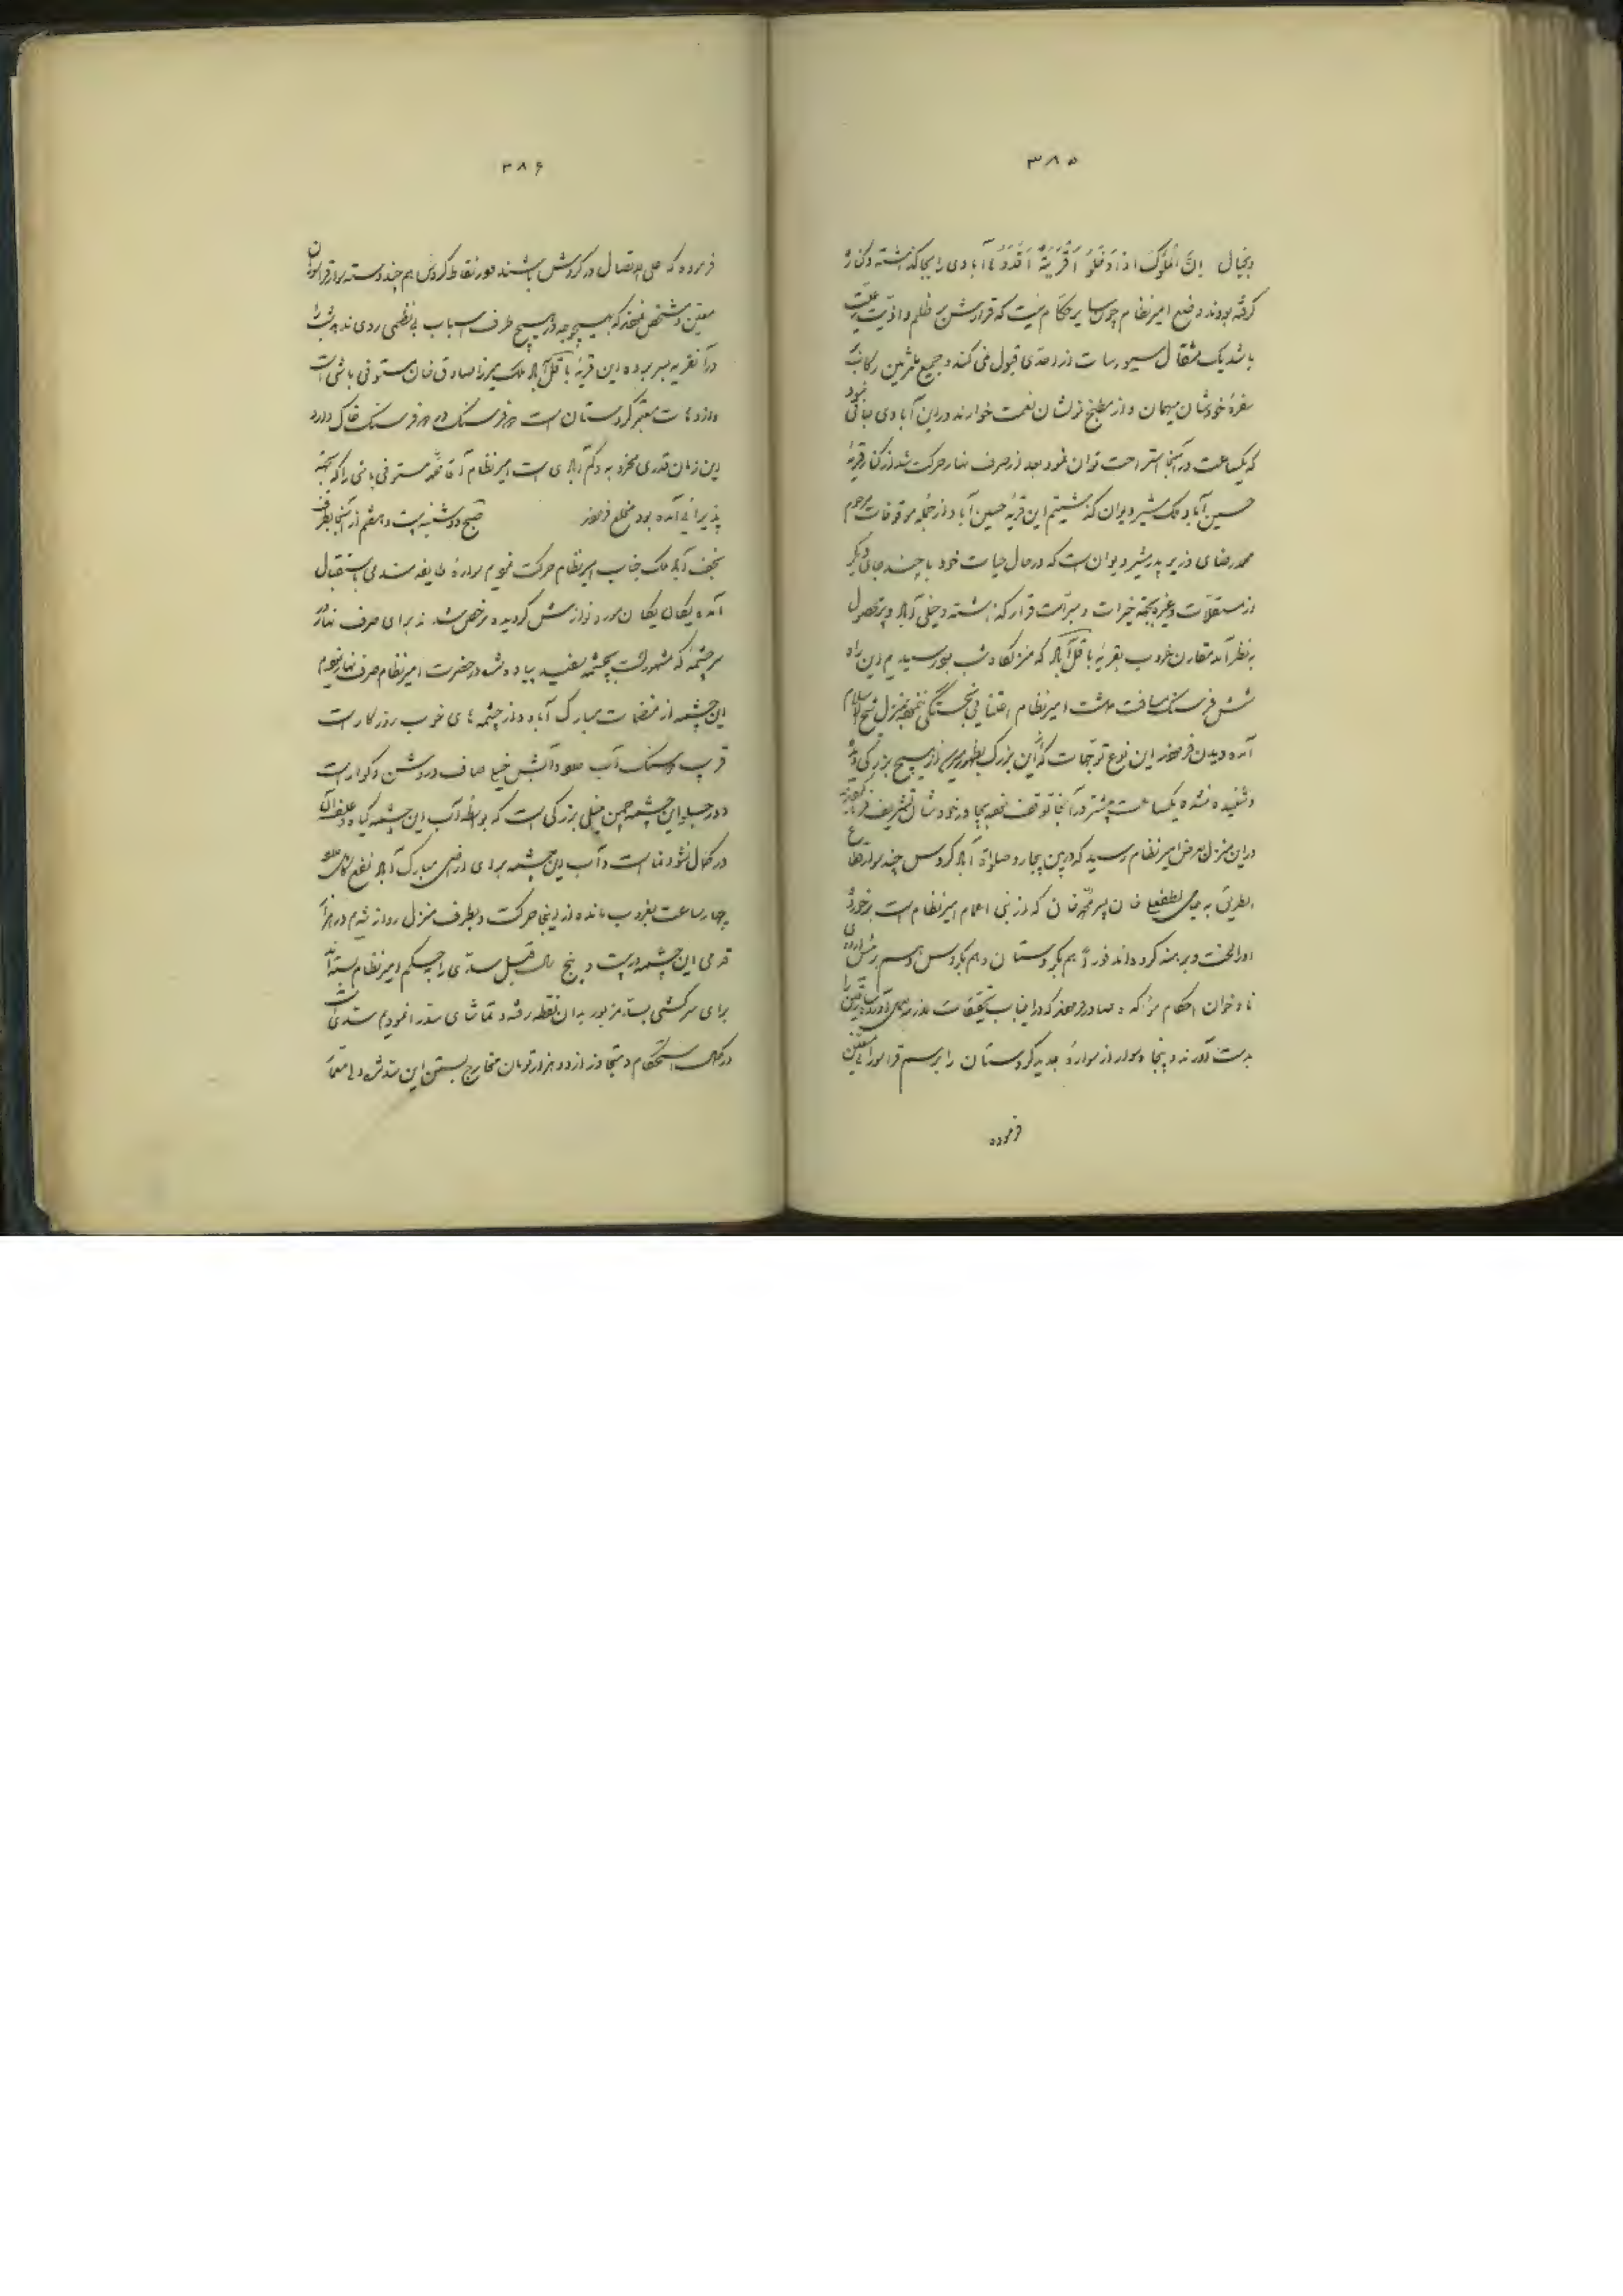 ۳۸۵
بخیال انّ الملوک اذا دخلوا قریة افسدوها آبادی را بجا گذاشته و کناره
گرفته بودند وضع امیرنظام چون سایر حکام نیست که قرارشان بر ظلم و اذیت رعیت
باشد یک مثقال سیورسات از احدی قبول نمی کند و جمیع ملتزمین رکاب
سفره خودشان میهمان و از مطبخ خودشان نعمت خوارند در این آبادی جائی نبود
که یکساعت در آنجا استراحت توان نمود بعد از صرف نهار حرکت شد از کنار قریه
حسین آباد ملک مشیر دیوان گذشتیم این قریه حسین آباد از جمله موقوفات مرحوم
محمد رضای وزیر پدر مشیر دیوان است که در حال حیات خود با چند جای دیگر
از مستغلات و غیره بجهة خیرات و مبرات قرار گذاشته و خیلی آباد و پرمحصول
بنظر آمد مقارن غروب بقریه باقل آباد که منزلگاه شب بود رسیدیم این راه
شش فرسنگ مسافت داشت امیرنظام اعتنا بخستگی نفرموده بمنزل شیخ الاسلام
آمده دیدن فرمودند این نوع توجهات که از این بزرگ بظهور میرسد از هیچ بزرگی دیده
و شنیده نشده یکساعت بیشتر در آنجا توقف نموده بجادر خودشان تشریف فرما گردیدند
در این منزل بعرض امیرنظام رسید که در بین بیجار و صلوات آباد گروس چند سوار قطاع
الطریق به لطفعلی خان پسر محمد خان که از بنی اعمام امیرنظام است برخورده
او را لخت و برهنه کرده اند فوراً هم بکردستان و هم بگروس و هم
خان احکام مؤکده صادر فرمودند که در این باب تحقیقات لازمه بعمل آورده سارقین را
بدست آورند و پنجاه سوار از سواره جدید کردستان را برسم قراسورانی معین
فرموده
۳۸۶
فرموده که علی الاتصال در گردش باشند و در نقاط گروس هم چند دسته سوار قراسوران
معین و مشخص نمودند که بهیچوجه در هیچ طرف اسباب بی نظمی روی ندهد شب را
در آن قریه بسر برده این قریه باقل آباد ملک میرزا صادق خان مستوفی باشی است
و از دهات معتبر کردستان است دو فرسنگ در دو فرسنگ خاک دارد
این زمان قدری مخروبه و کم آبادی است امیرنظام آقا محمد مستوفی باشی را که بجهة
پذیرائی آمده بود مخلع فرمودند صبح دوشنبه بیست و هفتم از آنجا بطرف
نجف آباد ملک جناب امیرنظام حرکت نمودیم سواره طایفه مندمی باستقبال
آمده یکان یکان مورد نوازش گردیده مرخص شدند برای صرف نهار در
سر چشمه که مشهور است بچشمه سفید پیاده شده در حضرت امیرنظام صرف نهار نمودیم
این چشمه از مضافات مبارک آباد و از چشمه های خوب روزگار است
قریب سنگ آب دارد و آبش خیلی صاف و روشن و گوارا است
و در جلو این چشمه چمن خیلی بزرگی است که بواسطه آب این چشمه گیاه و علف آن
در کمال نشو و نما است و آب این چشمه برای اراضی مبارک آباد نفع کلی دارد
چهار ساعت بغروب مانده از اینجا حرکت و بطرف منزل روانه شدیم در هزار
قدمی این چشمه در بیست و پنج سال قبل سدّی را بحکم امیرنظام بسته اند
برای سرکشی بسد مزبور بدان نقطه رفته و تماشای سد را نمودیم سدّی است
در کمال استحکام و متجاوز از دو هزار تومان مخارج بستن این سد شده و